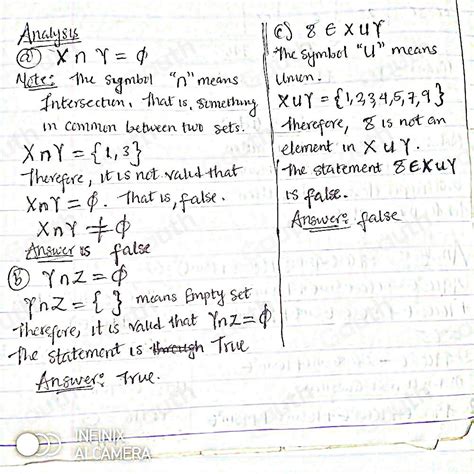 Analysis
(a) X ∩ Y = ϕ
Note: The symbol "∩" means
Intersection, that is, something
in common between two sets.
X∩Y = {1,3}
Therefore, it is not valid that
X∩Y = ϕ. That is, false.
X∩Y ≠ ϕ
Answer is false
(b) Y∩Z = ϕ
Y∩Z = { } means Empty set
Therefore, it is valid that Y∩Z = ϕ.
The statement is through True
Answer: True.
(c) 8 ∈ X∪Y
The symbol "∪" means
Union.
X∪Y = {1,2,3,4,5,7,9}
Therefore, 8 is not an
element in X∪Y.
The statement 8∈X∪Y
is false.
Answer: false
INFINIX
AI CAMERA